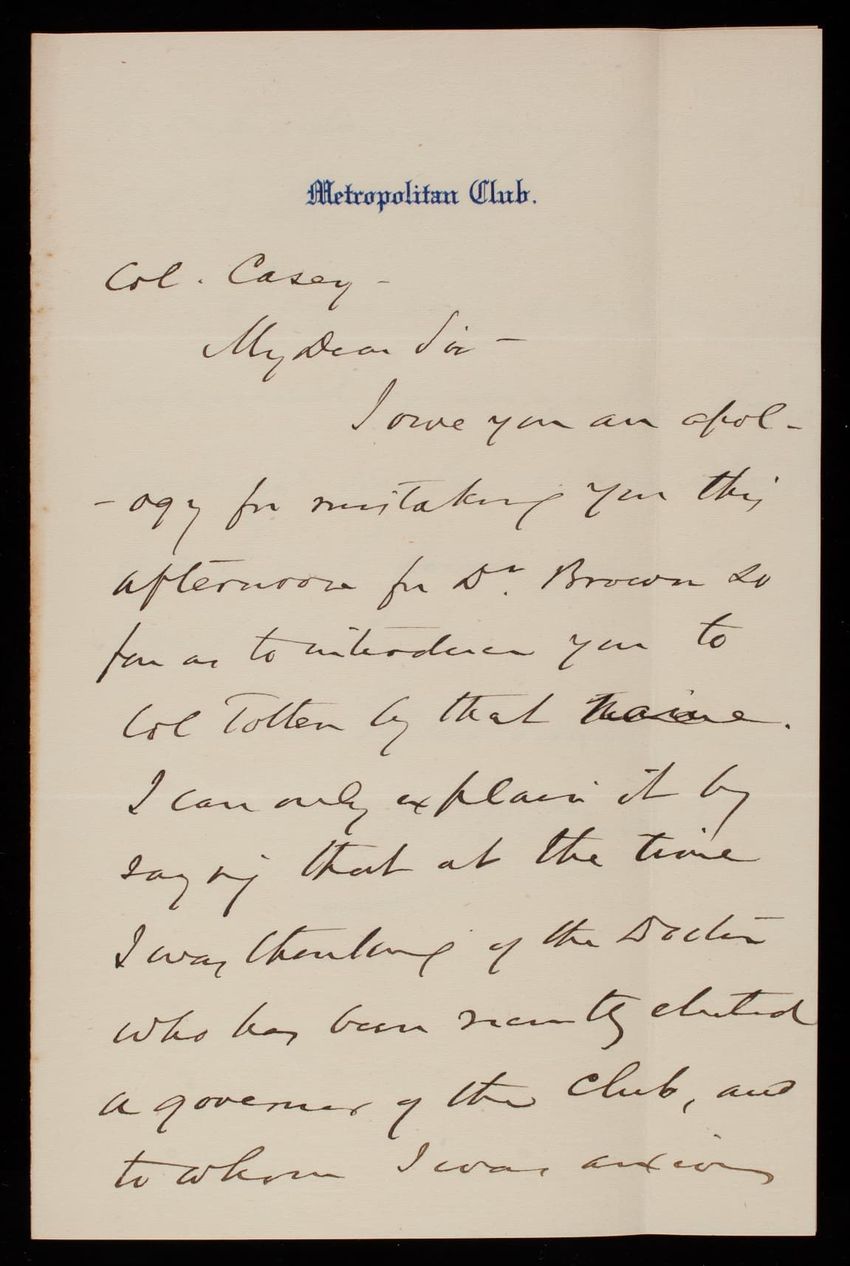 Metropolitan Club.
Col. Casey -
My Dear Sir -
I owe you an apol-
- ogy for mistaking you this
afternoon for Dr. Brown so
far as to introduce you to
Col Totten by that name.
I can only explain it by
saying that at the time
I was thinking of the Doctor
who has been recently elected
a governor of the Club, and
to whom I was anxious